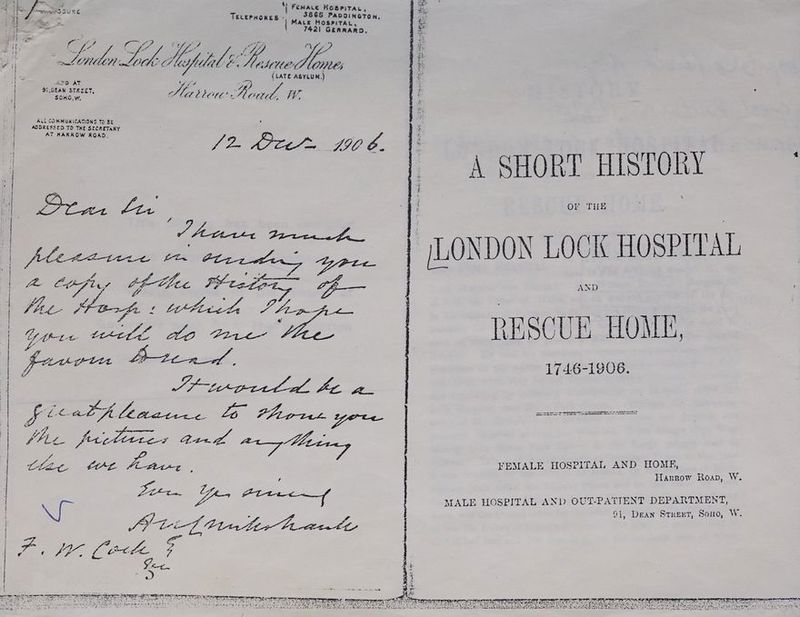 TELEPHONES
FEMALE HOSPITAL,
3666 PADDINGTON.
MALE HOSPITAL,
7421 GERRARD.
London Lock Hospital & Rescue Homes
(LATE ASYLUM.)
Harrow Road, W.
AND AT
91, DEAN STREET,
SOHO, W.
ALL COMMUNICATIONS TO BE
ADDRESSED TO THE SECRETARY
AT HARROW ROAD.
12 Decr 1906.
Dear Sir,
I have much
pleasure in sending you
a copy of the History of
the Hosp: which I hope
you will do me the
favour to read.
It would be a
great pleasure to show you
the pictures and anything
else we have.
F. W. Cock
A SHORT HISTORY
OF THE
LONDON LOCK HOSPITAL
AND
RESCUE HOME,
1746-1906.
FEMALE HOSPITAL AND HOME,
HARROW ROAD, W.
MALE HOSPITAL AND OUT-PATIENT DEPARTMENT,
91, DEAN STREET, SOHO, W.